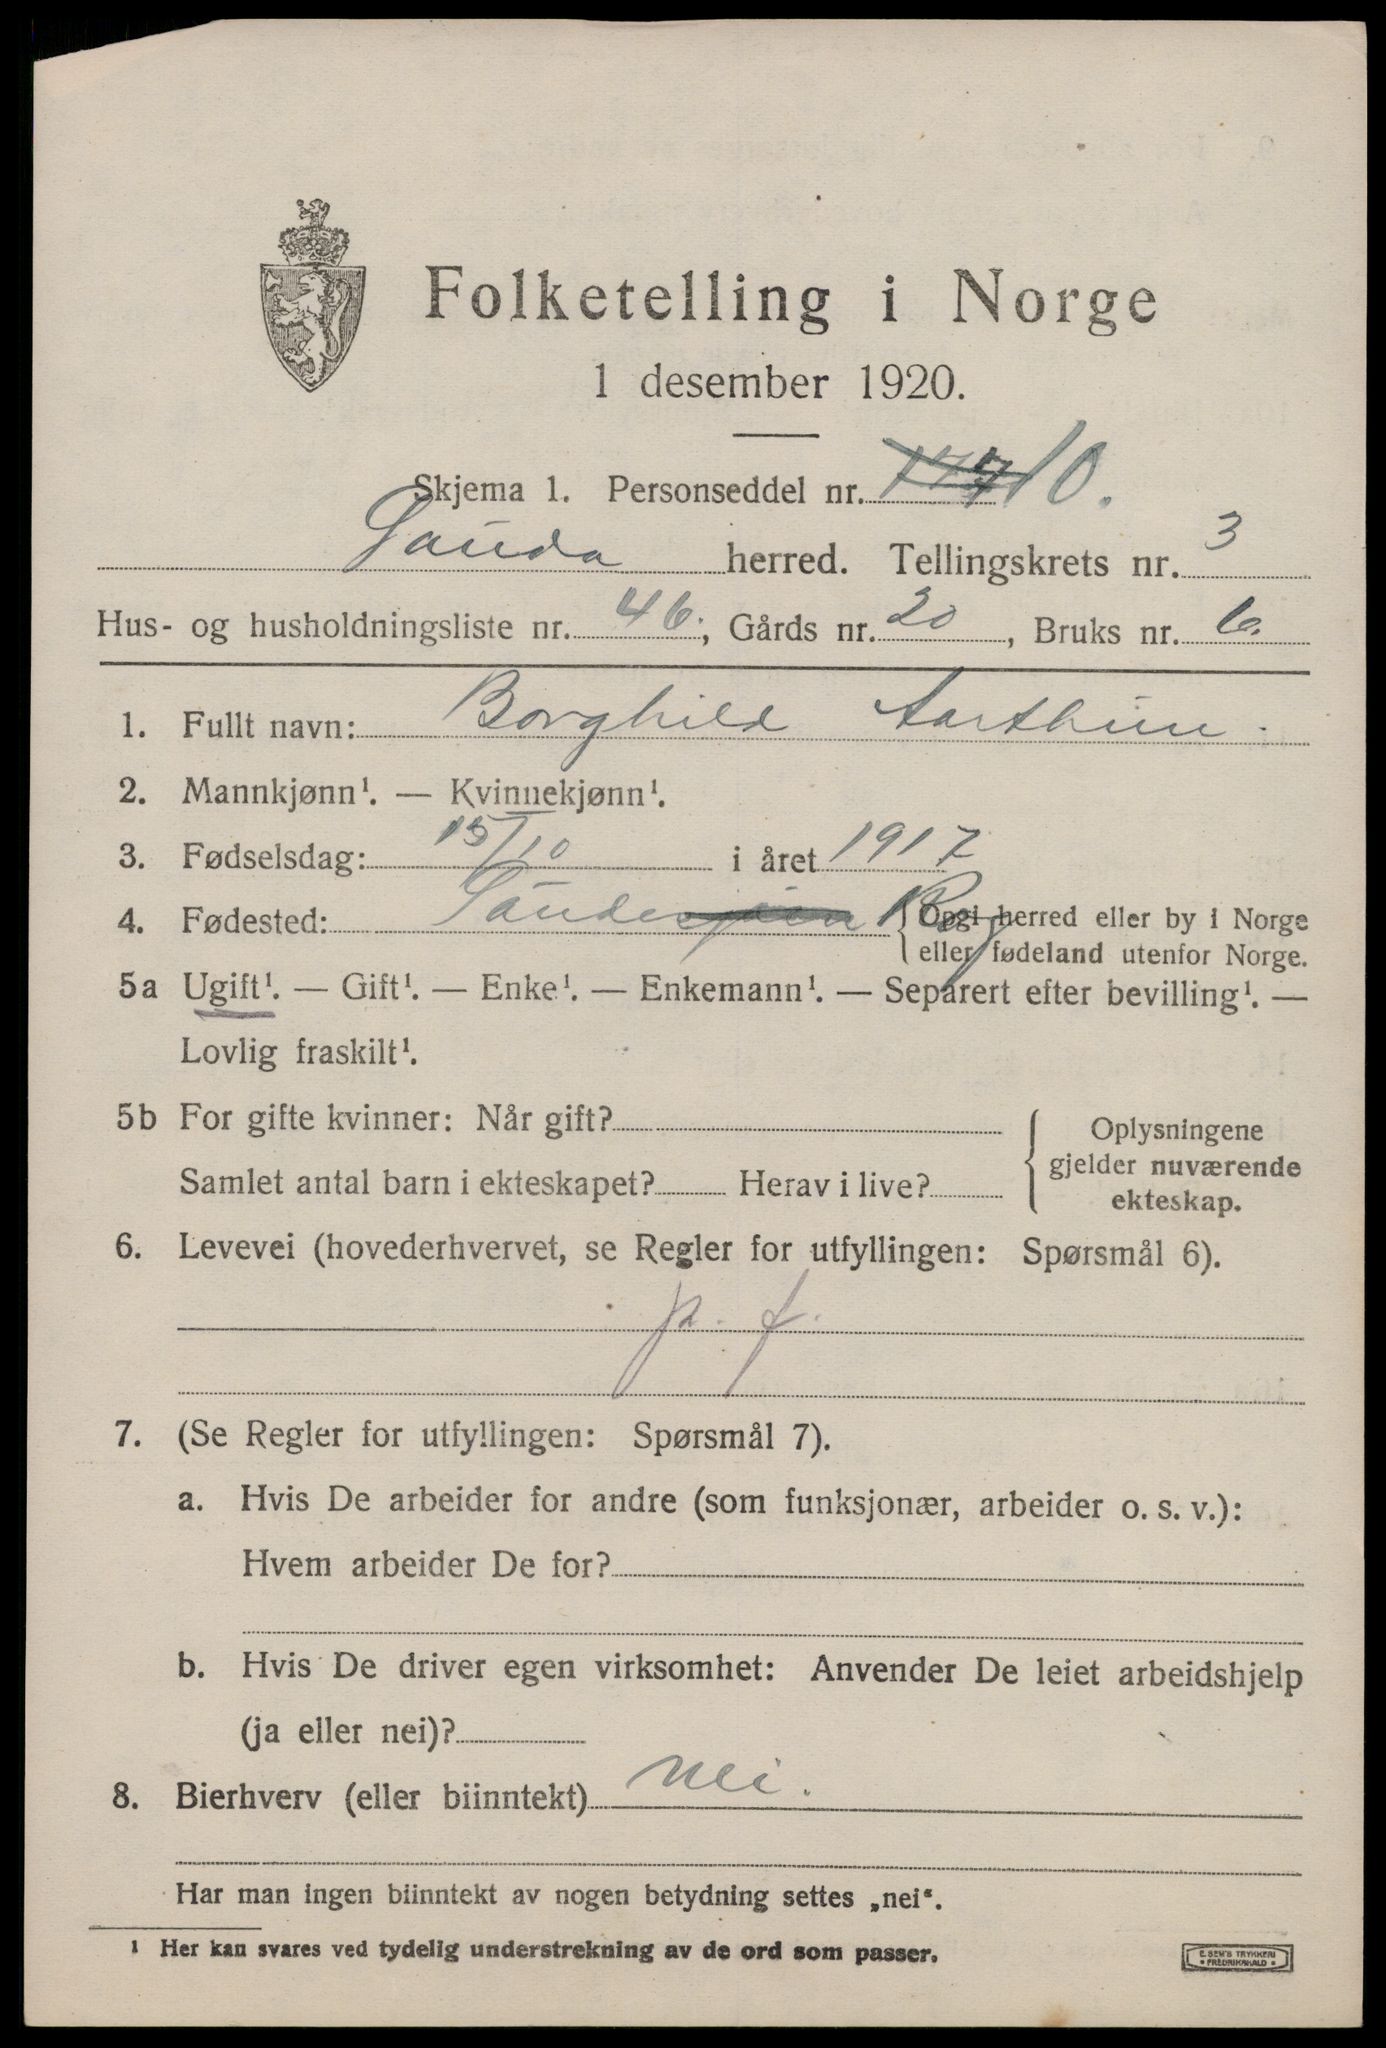 Folketelling i Norge
1 desember 1920.
Skjema 1. Personseddel nr. 10.
Sauda herred. Tellingskrets nr. 3
Hus- og husholdningsliste nr. 46., Gårds nr. 20, Bruks nr. 6.
1. Fullt navn: Borghild Aarthun.
2. Mannkjønn¹. — Kvinnekjønn¹.
3. Fødselsdag: 15/10 i året 1917
4. Fødested: Saude Rog { Opgi herred eller by i Norge
eller fødeland utenfor Norge.
5a Ugift¹. — Gift¹. — Enke¹. — Enkemann¹. — Separert efter bevilling¹. —
Lovlig fraskilt¹.
5b For gifte kvinner: Når gift? { Oplysningene
gjelder nuværende
Samlet antal barn i ekteskapet? Herav i live?
ekteskap.
6. Levevei (hovederhvervet, se Regler for utfyllingen: Spørsmål 6).
p. f.
7. (Se Regler for utfyllingen: Spørsmål 7).
a. Hvis De arbeider for andre (som funksjonær, arbeider o. s. v.):
Hvem arbeider De for?
b. Hvis De driver egen virksomhet: Anvender De leiet arbeidshjelp
(ja eller nei)?
8. Bierhverv (eller biinntekt) nei.
Har man ingen biinntekt av nogen betydning settes „nei“.
¹ Her kan svares ved tydelig understrekning av de ord som passer.
E. SEM'S TRYKKERI
• FREDRIKSHALD •